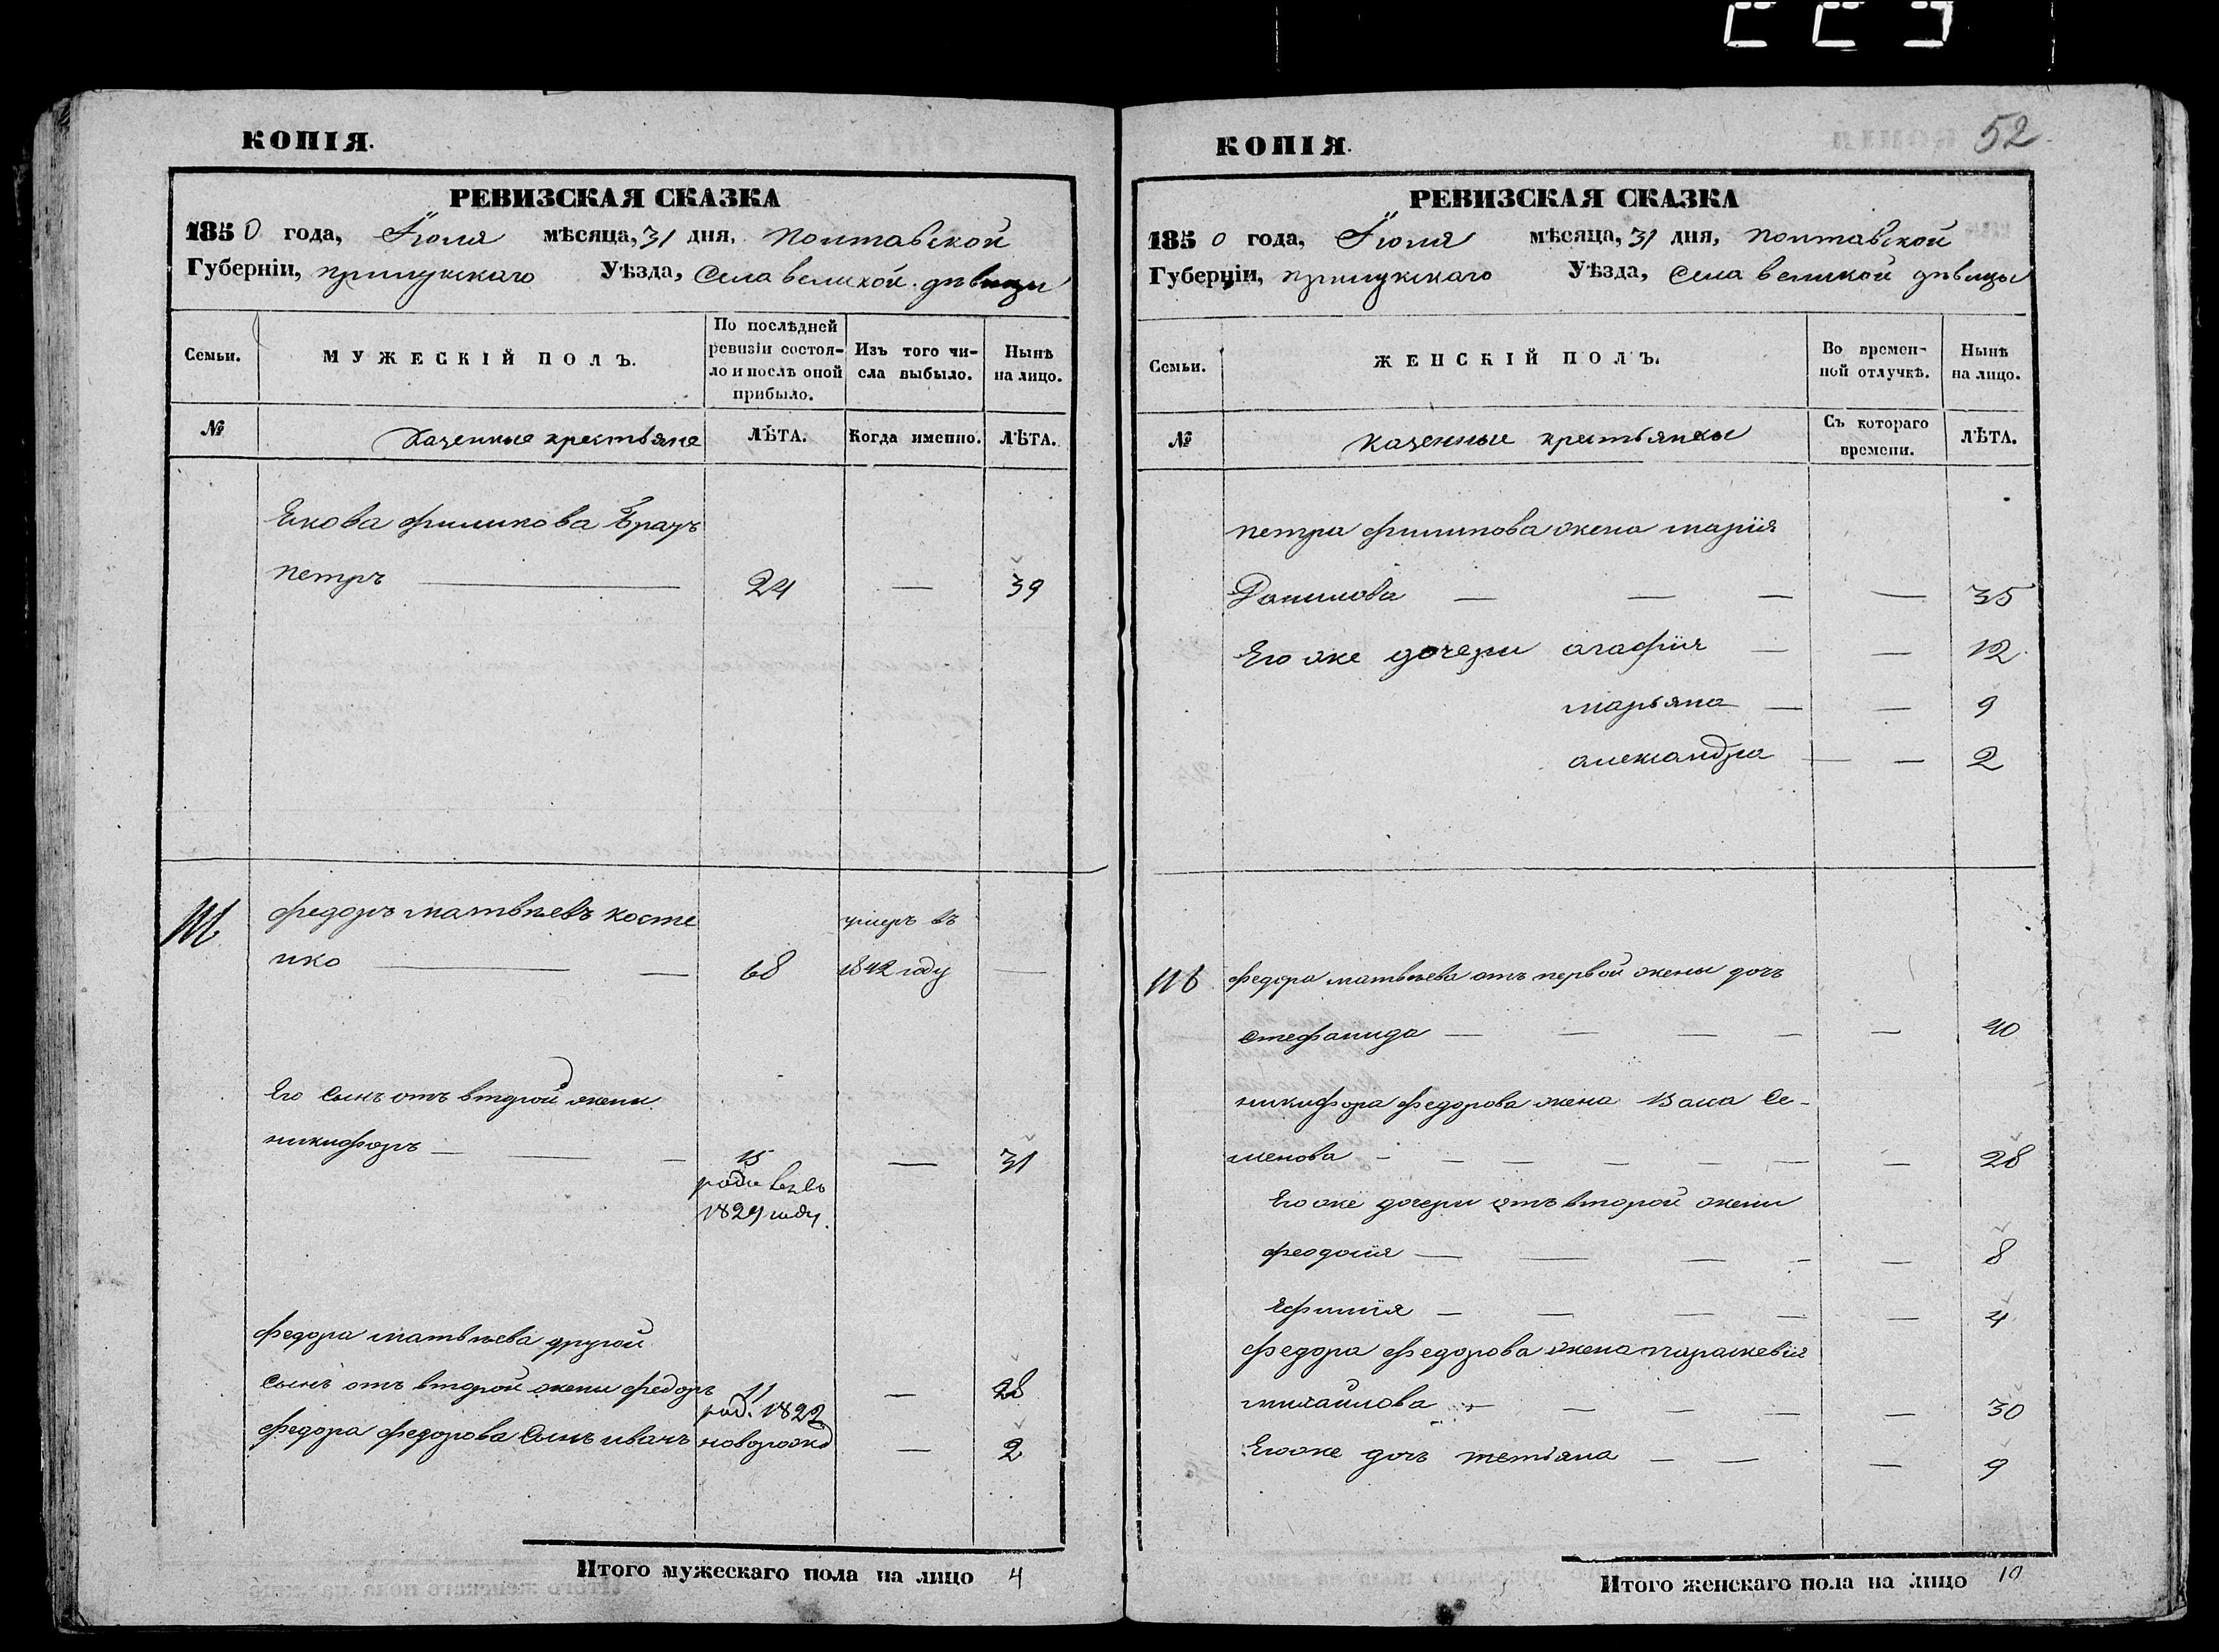 КОПІЯ.
РЕВИЗСКАЯ СКАЗКА
1850 года, Іюля мѣсяца, 31 дня, Полтавской
Губерніи, прилукскаго Уѣзда, Села великой дѣвицы
Семьи.
МУЖЕСКІЙ ПОЛЪ.
По послѣдней
ревизіи состоя-
ло и послѣ оной
прибыло.
Изъ того чи-
сла выбыло.
Нынѣ
на лицо.
№
Казенные крестьяне
ЛѢТА.
Когда именно.
ЛѢТА.
Якова филипова Братъ
петръ — 24 — 39
федоръ матвѣевъ косте
умеръ въ
нко — 68 1842 году —
Его Сынъ отъ второй жены
никифоръ — 15 — 31
1829 году.
федора матвѣева другой
Сынъ отъ второй жены федоръ 11 — 28
род. 1822
федора федорова Сынъ иванъ новорожд — 2
Итого мужескаго пола на лицо 4
52
КОПІЯ.
РЕВИЗСКАЯ СКАЗКА
1850 года, Іюля мѣсяца, 31 дня, Полтавской
Губерніи, прилукскаго Уѣзда, Села великой дѣвицы
Семьи.
ЖЕНСКІЙ ПОЛЪ.
Во времен-
ной отлучкѣ.
Нынѣ
на лицо.
№
Казенные крестьянки
Съ котораго
времени.
ЛѢТА.
петра филипова жена марія
Данилова — — — — 35
Его же дочери агафія — — 12
марьяна — — 9
александра — — 2
федора матвѣева отъ первой жены дочь
стефанида — — — — — 40
никифора федорова жена Се-
менова — — — — — — — 28
Его же дочери отъ второй жены
феодосія — — — — — 8
Ефимія — — — — — 4
федора федорова жена параскевія
михаилова — — — — — 30
Его же дочь тетіяна — — — 9
Итого женскаго пола на лицо 10